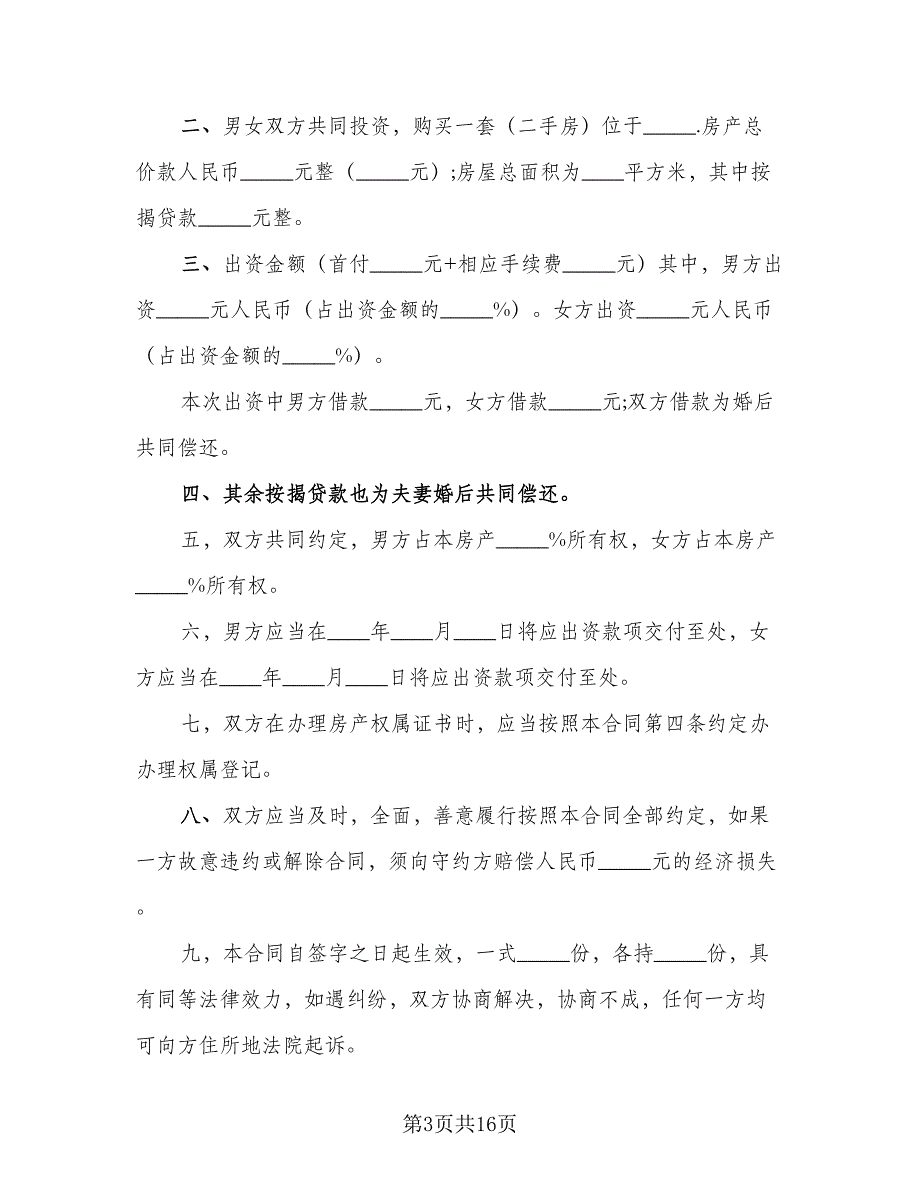 二、男女双方共同投资，购买一套（二手房）位于_____.房产总
价款人民币_____元整（_____元）;房屋总面积为____平方米，其中按
揭贷款_____元整。
三、出资金额（首付_____元+相应手续费_____元）其中，男方出
资_____元人民币（占出资金额的_____%）。女方出资_____元人民币
（占出资金额的_____%）。
本次出资中男方借款_____元，女方借款_____元;双方借款为婚后
共同偿还。
四、其余按揭贷款也为夫妻婚后共同偿还。
五，双方共同约定，男方占本房产_____%所有权，女方占本房产
_____%所有权。
六，男方应当在____年____月____日将应出资款项交付至处，女
方应当在____年____月____日将应出资款项交付至处。
七，双方在办理房产权属证书时，应当按照本合同第四条约定办
办理权属登记。
八、双方应当及时，全面，善意履行按照本合同全部约定，如果
一方故意违约或解除合同，须向守约方赔偿人民币_____元的经济损失
。
九，本合同自签字之日起生效，一式_____份，各持_____份，具
有同等法律效力，如遇纠纷，双方协商解决，协商不成，任何一方均
可向方住所地法院起诉。
第3页共16页